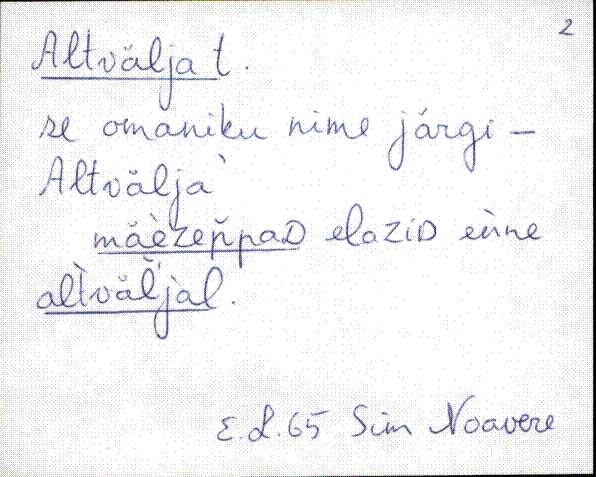 2
Altvälja t.
se omaniku nime järgi –
Altvälja
mäèzeňpaᴅ elaziᴅ eìne
alt̀väľjàl.
E.L. 65 Sim Noavere